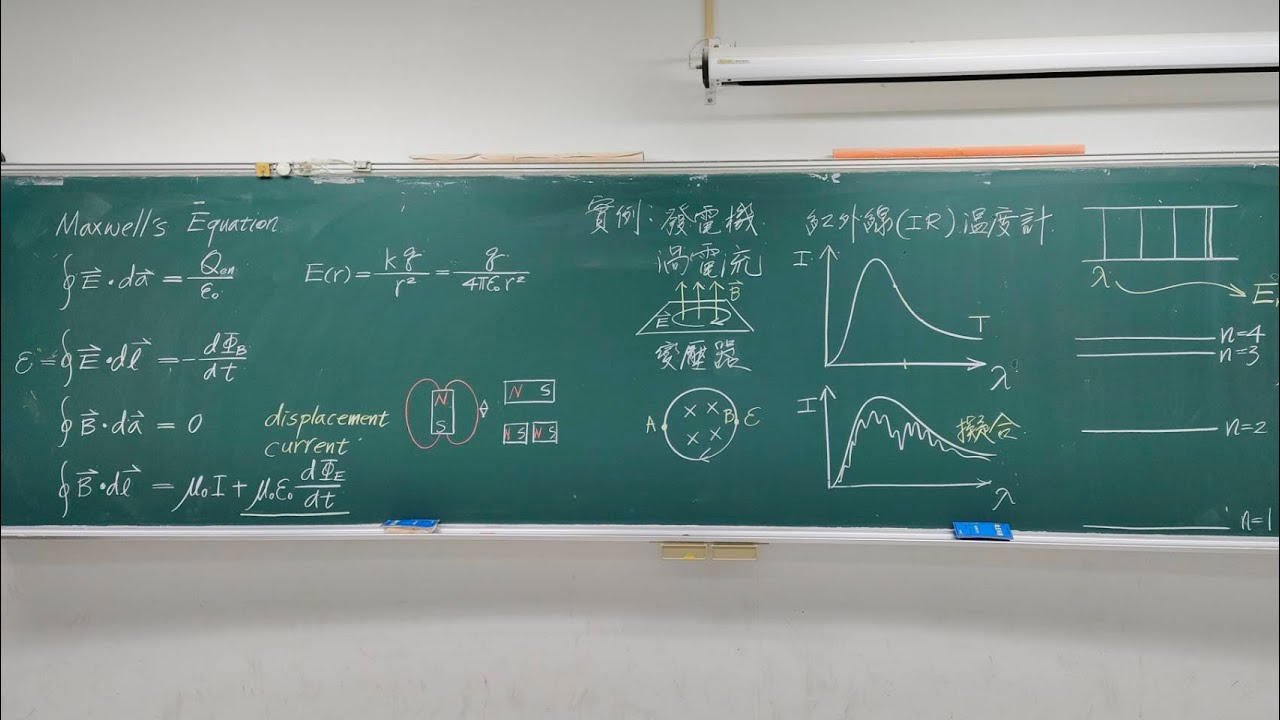 Maxwell's Equation
∮E⃗·da⃗ = Qen/ε₀
E(r) = kq/r² = q/4πε₀r²
ε = ∮E⃗·dl⃗ = -dΦ_B/dt
∮B⃗·da⃗ = 0
displacement
current
∮B⃗·dl⃗ = μ₀I + μ₀ε₀ dΦ_E/dt
N
S
N S
N S N S
實例:發電機
渦電流
B⃗
E⃗
變壓器
A × × B ε
× ×
紅外線(IR)溫度計
I
T
λ
I
擬合
λ
λ
n=4
n=3
n=2
n=1